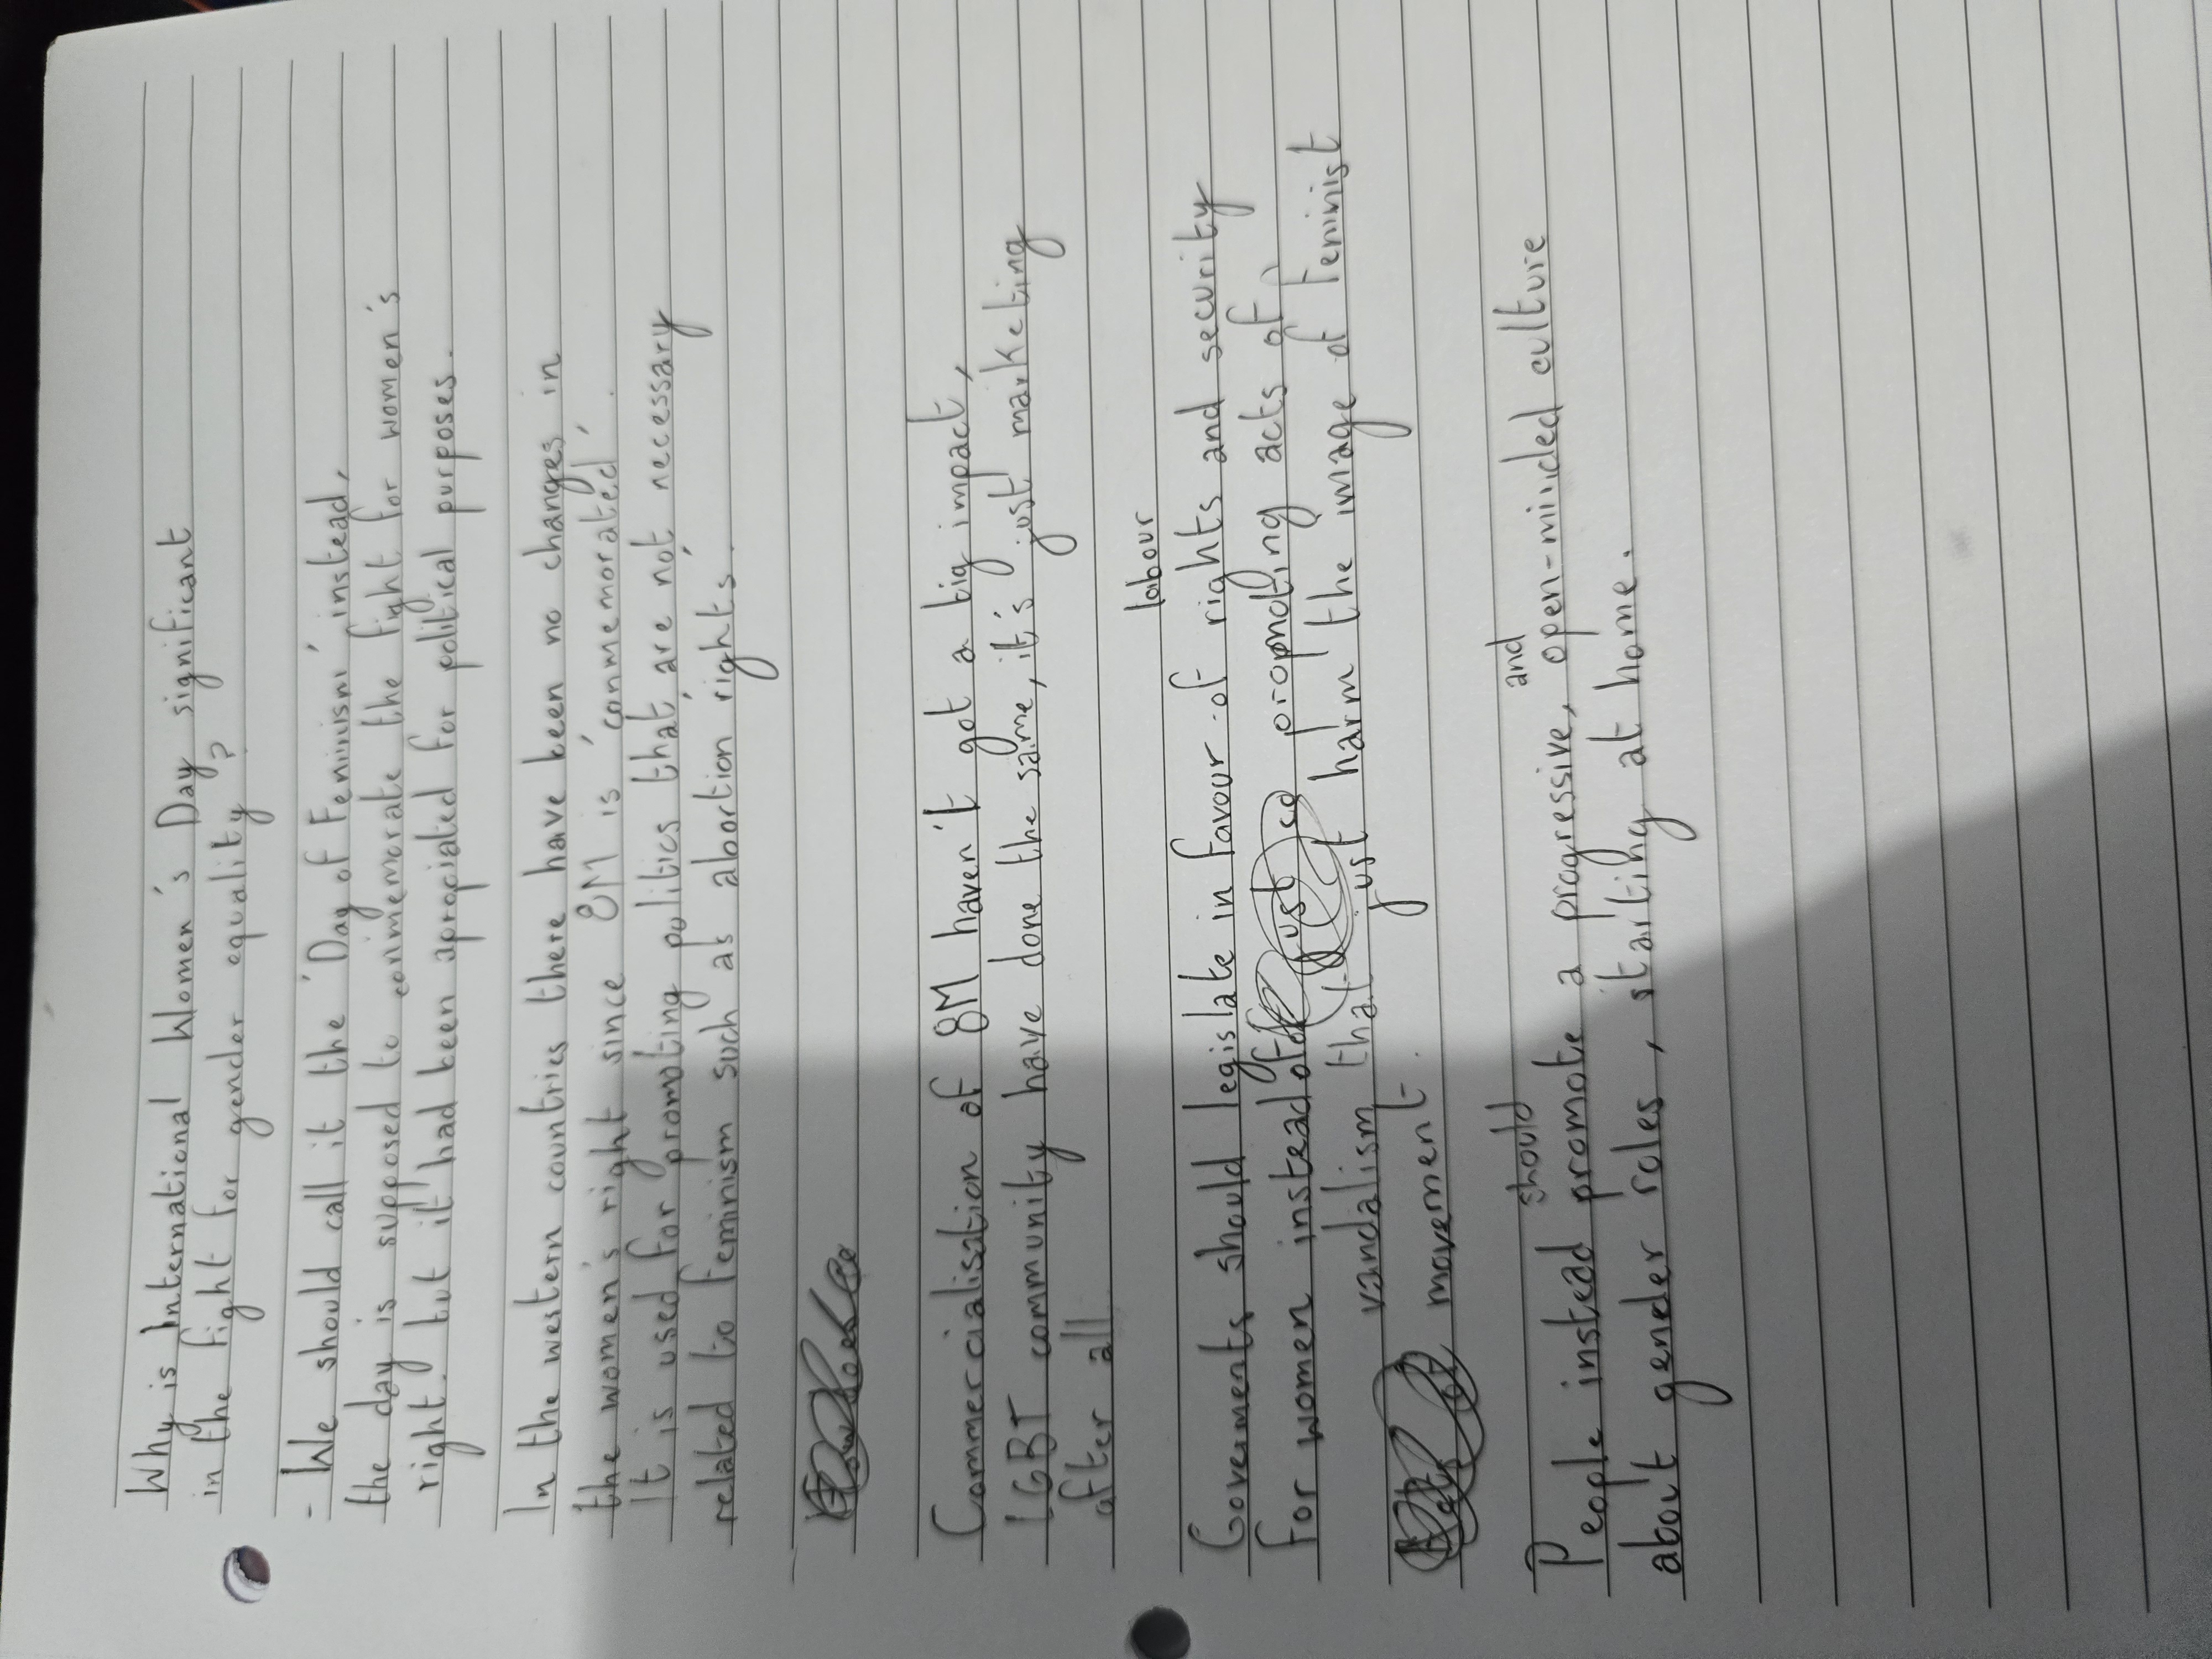 Why is International Women's Day significant
in the fight for gender equality?
- We should call it the 'Day of Feminism' instead,
the day is supposed to conmemorate the fight for women's
right, but it had been apropiated for political purposes.
In the western countries there have been no changes in
the women's right since 8M is 'conmemorated'.
It is used for promoting politics that are not necessary
related to feminism such as abortion rights.
Commercialisation of 8M haven't got a big impact,
LGBT community have done the same, it's just marketing
after all
labour
Governments should legislate in favour of rights and security
for women instead of promoting acts of
vandalism that just harm the image of feminist
movement.
should and
People instead promote a progressive, open-minded culture
about gender roles, starting at home.